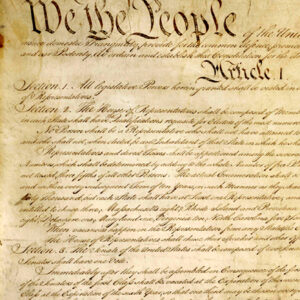 We the People of the Unit
insure domestic Tranquility, provide for the common defence, promot
and our Posterity, do ordain and establish this Constitution for the
Article. I
Section. 1. All legislative Powers herein granted shall be vested in a
of Representatives.
Section. 2. The House of Representatives shall be composed of Member
in each State shall have Qualifications requisite for Electors of the
No Person shall be a Representative who shall not have attained
and who shall not, when elected, be an Inhabitant of that State in which
Representatives and direct Taxes shall be apportioned among the several
Numbers, which shall be determined by adding to the whole Number of free
not taxed, three fifths of all other Persons. The actual Enumeration shall
and within every subsequent Term of ten Years, in such Manner as they sh
thirty Thousand, but each State shall have at Least one Representative;
entitled to chuse three, Massachusetts eight, Rhode
eight, Delaware one, Maryland six, Virginia ten, North Carolina five,
When vacancies happen in the Representation from any State, the
The House of Representatives shall chuse their Speaker and other
Section. 3. The Senate of the United States shall be composed of two
Senator shall have one Vote.
Immediately after they shall be assembled in Consequence of the
of the Senators of the first Class shall be vacated at the Expiration of the
Class at the Expiration of the sixth Year, so that one third may be chosen